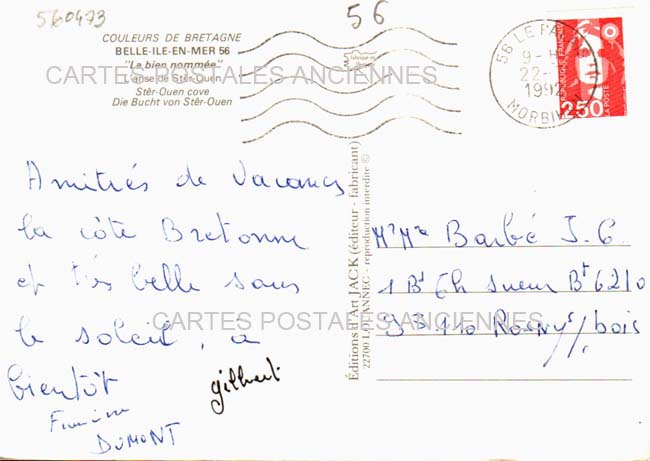 560473
56
COULEURS DE BRETAGNE
BELLE-ILE-EN-MER 56
"La bien nommée"
L'anse de Stêr-Ouen
Stêr-Ouen cove
Die Bucht von Stêr-Ouen
CARTES POSTALES ANCIENNES
56 LE PA
9-H
22-
1992
MORBIHAN
REPUBLIQUE FRANÇAISE
2,50
LA POSTE
Amitiés de vacances
la côte Bretonne
et très belle sous
le soleil, a
bientôt
gilbert
DUMONT
Editions d'Art JACK (éditeur - fabricant)
22700 LOUANNEC - reproduction interdite ©
Mr Me Barbé J.C
1 Bd Ch sueur Bt 6210
93110 Rosny s/bois
CARTES POSTALES ANCIENNES